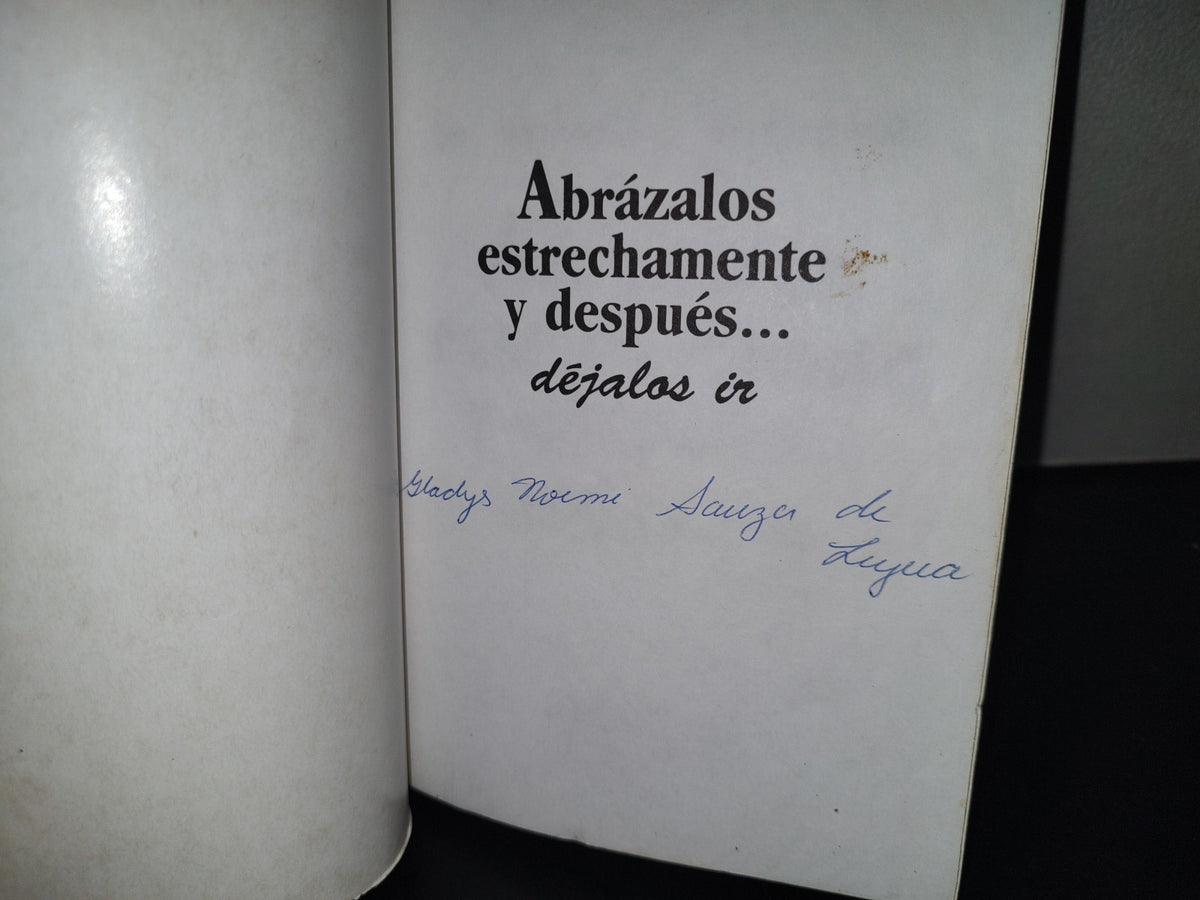 Abrázalos
estrechamente
y después...
déjalos ir
Gladys Noemi Sauza de